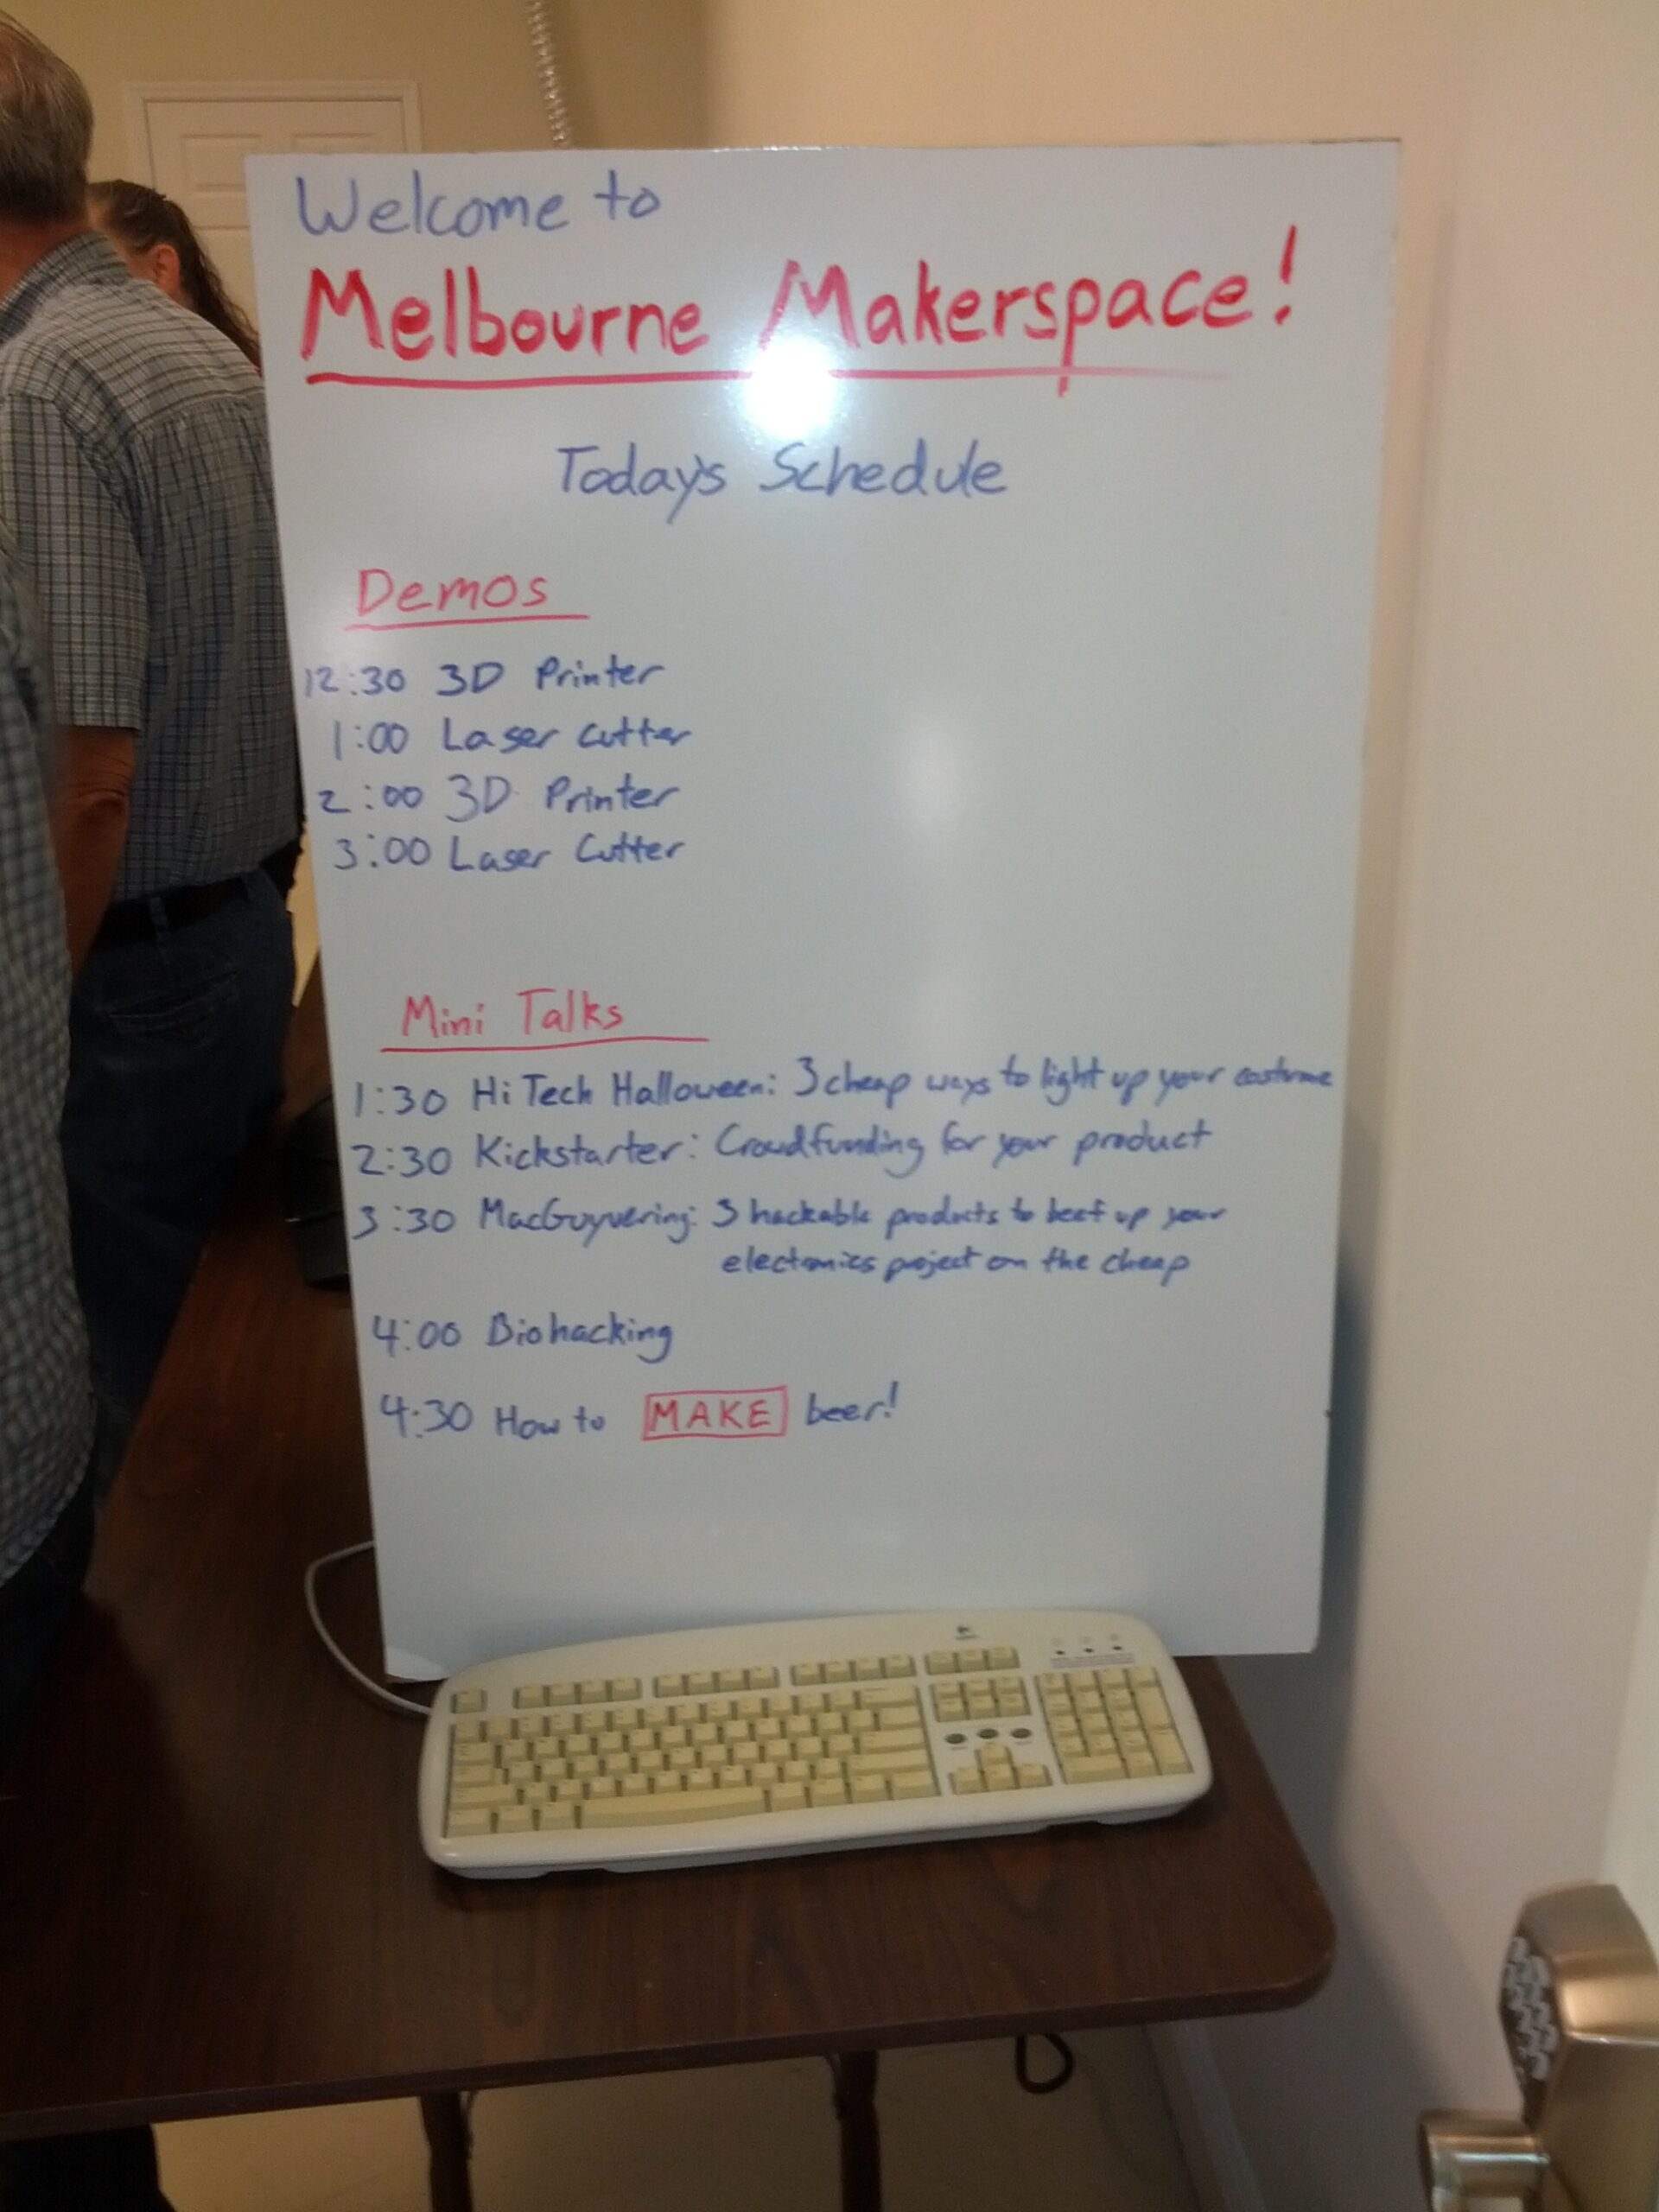 Welcome to
Melbourne Makerspace!
Today's Schedule
Demos
12:30 3D Printer
1:00 Laser Cutter
2:00 3D Printer
3:00 Laser Cutter
Mini Talks
1:30 Hi Tech Halloween: 3 cheap ways to light up your costume
2:30 Kickstarter: Crowdfunding for your product
3:30 MacGuyvering: 3 hackable products to beef up your
electronics project on the cheap
4:00 Biohacking
4:30 How to MAKE beer!